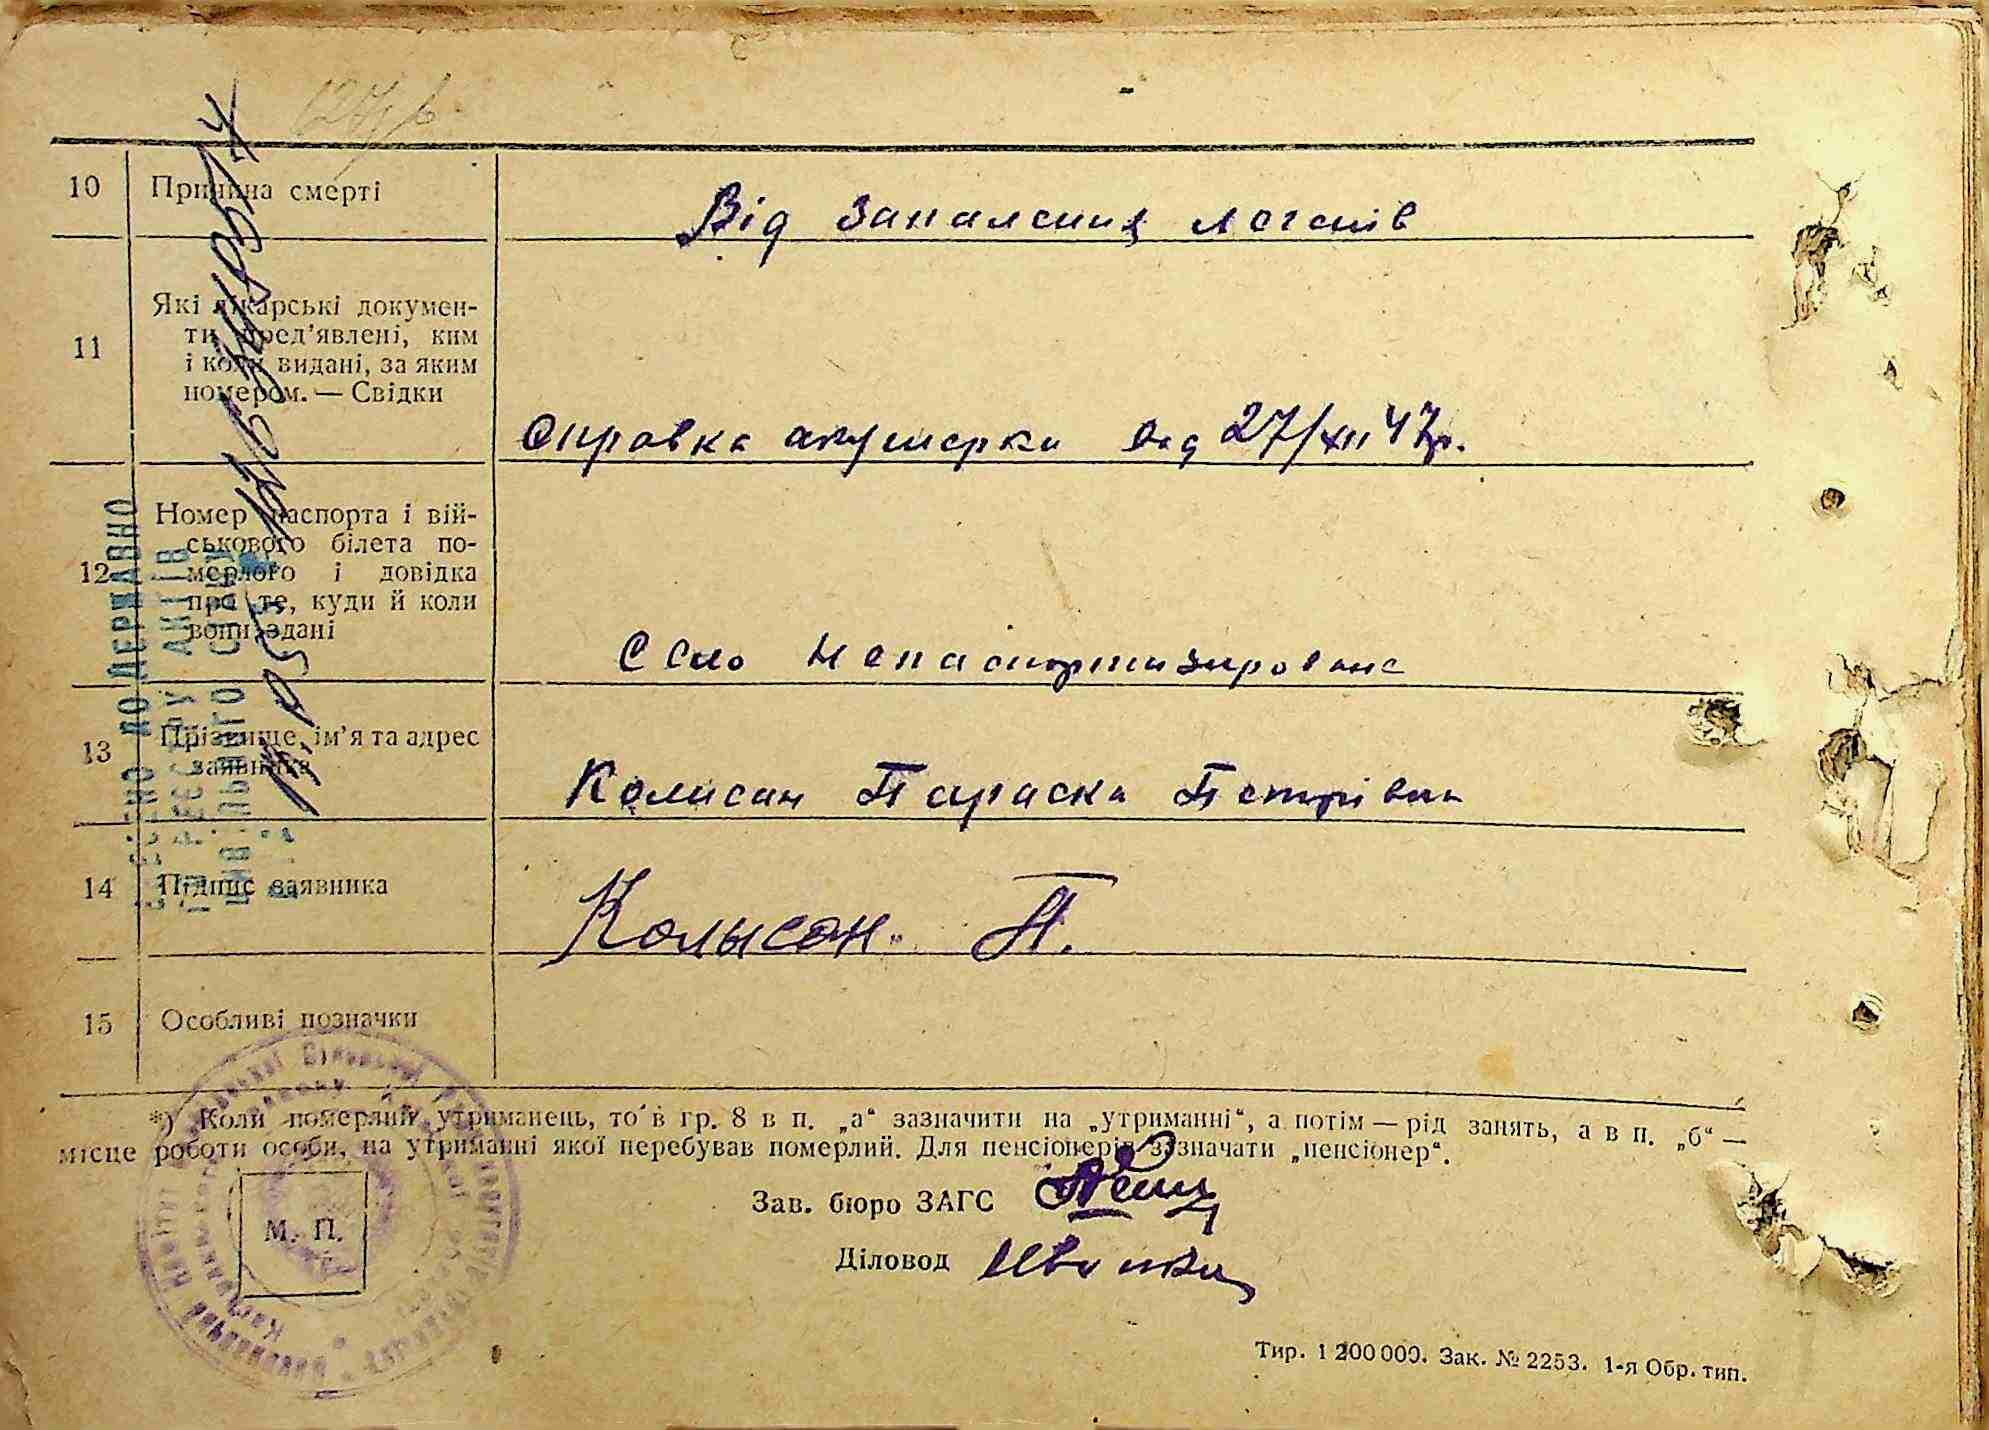 10 Причина смерті
Від запалення легенів
11 Які лікарські докумен-
ти пред’явлені, ким
і коли видані, за яким
номером. — Свідки
Справка акушерки від 27/XII 47р.
12 Номер паспорта і вій-
ськового білета по-
мерлого і довідка
про те, куди й коли
вони здані
Село непаспортизироване
13 Прізвище, ім’я та адрес
заявника
Колисан Параска Петрівна
14 Підпис заявника
Колысан. П.
15 Особливі позначки
*) Коли померлий утриманець, то в гр. 8 в п. „а“ зазначити на „утриманні“, а потім — рід занять, а в п. „б“ —
місце роботи особи, на утриманні якої перебував померлий. Для пенсіонерів зазначати „пенсіонер“.
Зав. бюро ЗАГС
М. П.
Діловод
Тир. 1 200 000. Зак. № 2253. 1-я Обр. тип.